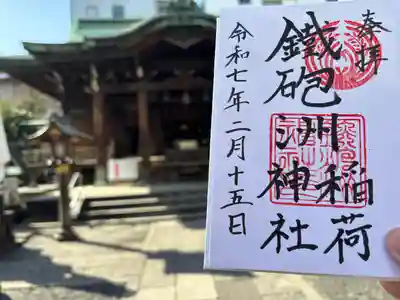 奉拝
鐵砲洲稲荷
神社
令和七年二月十五日